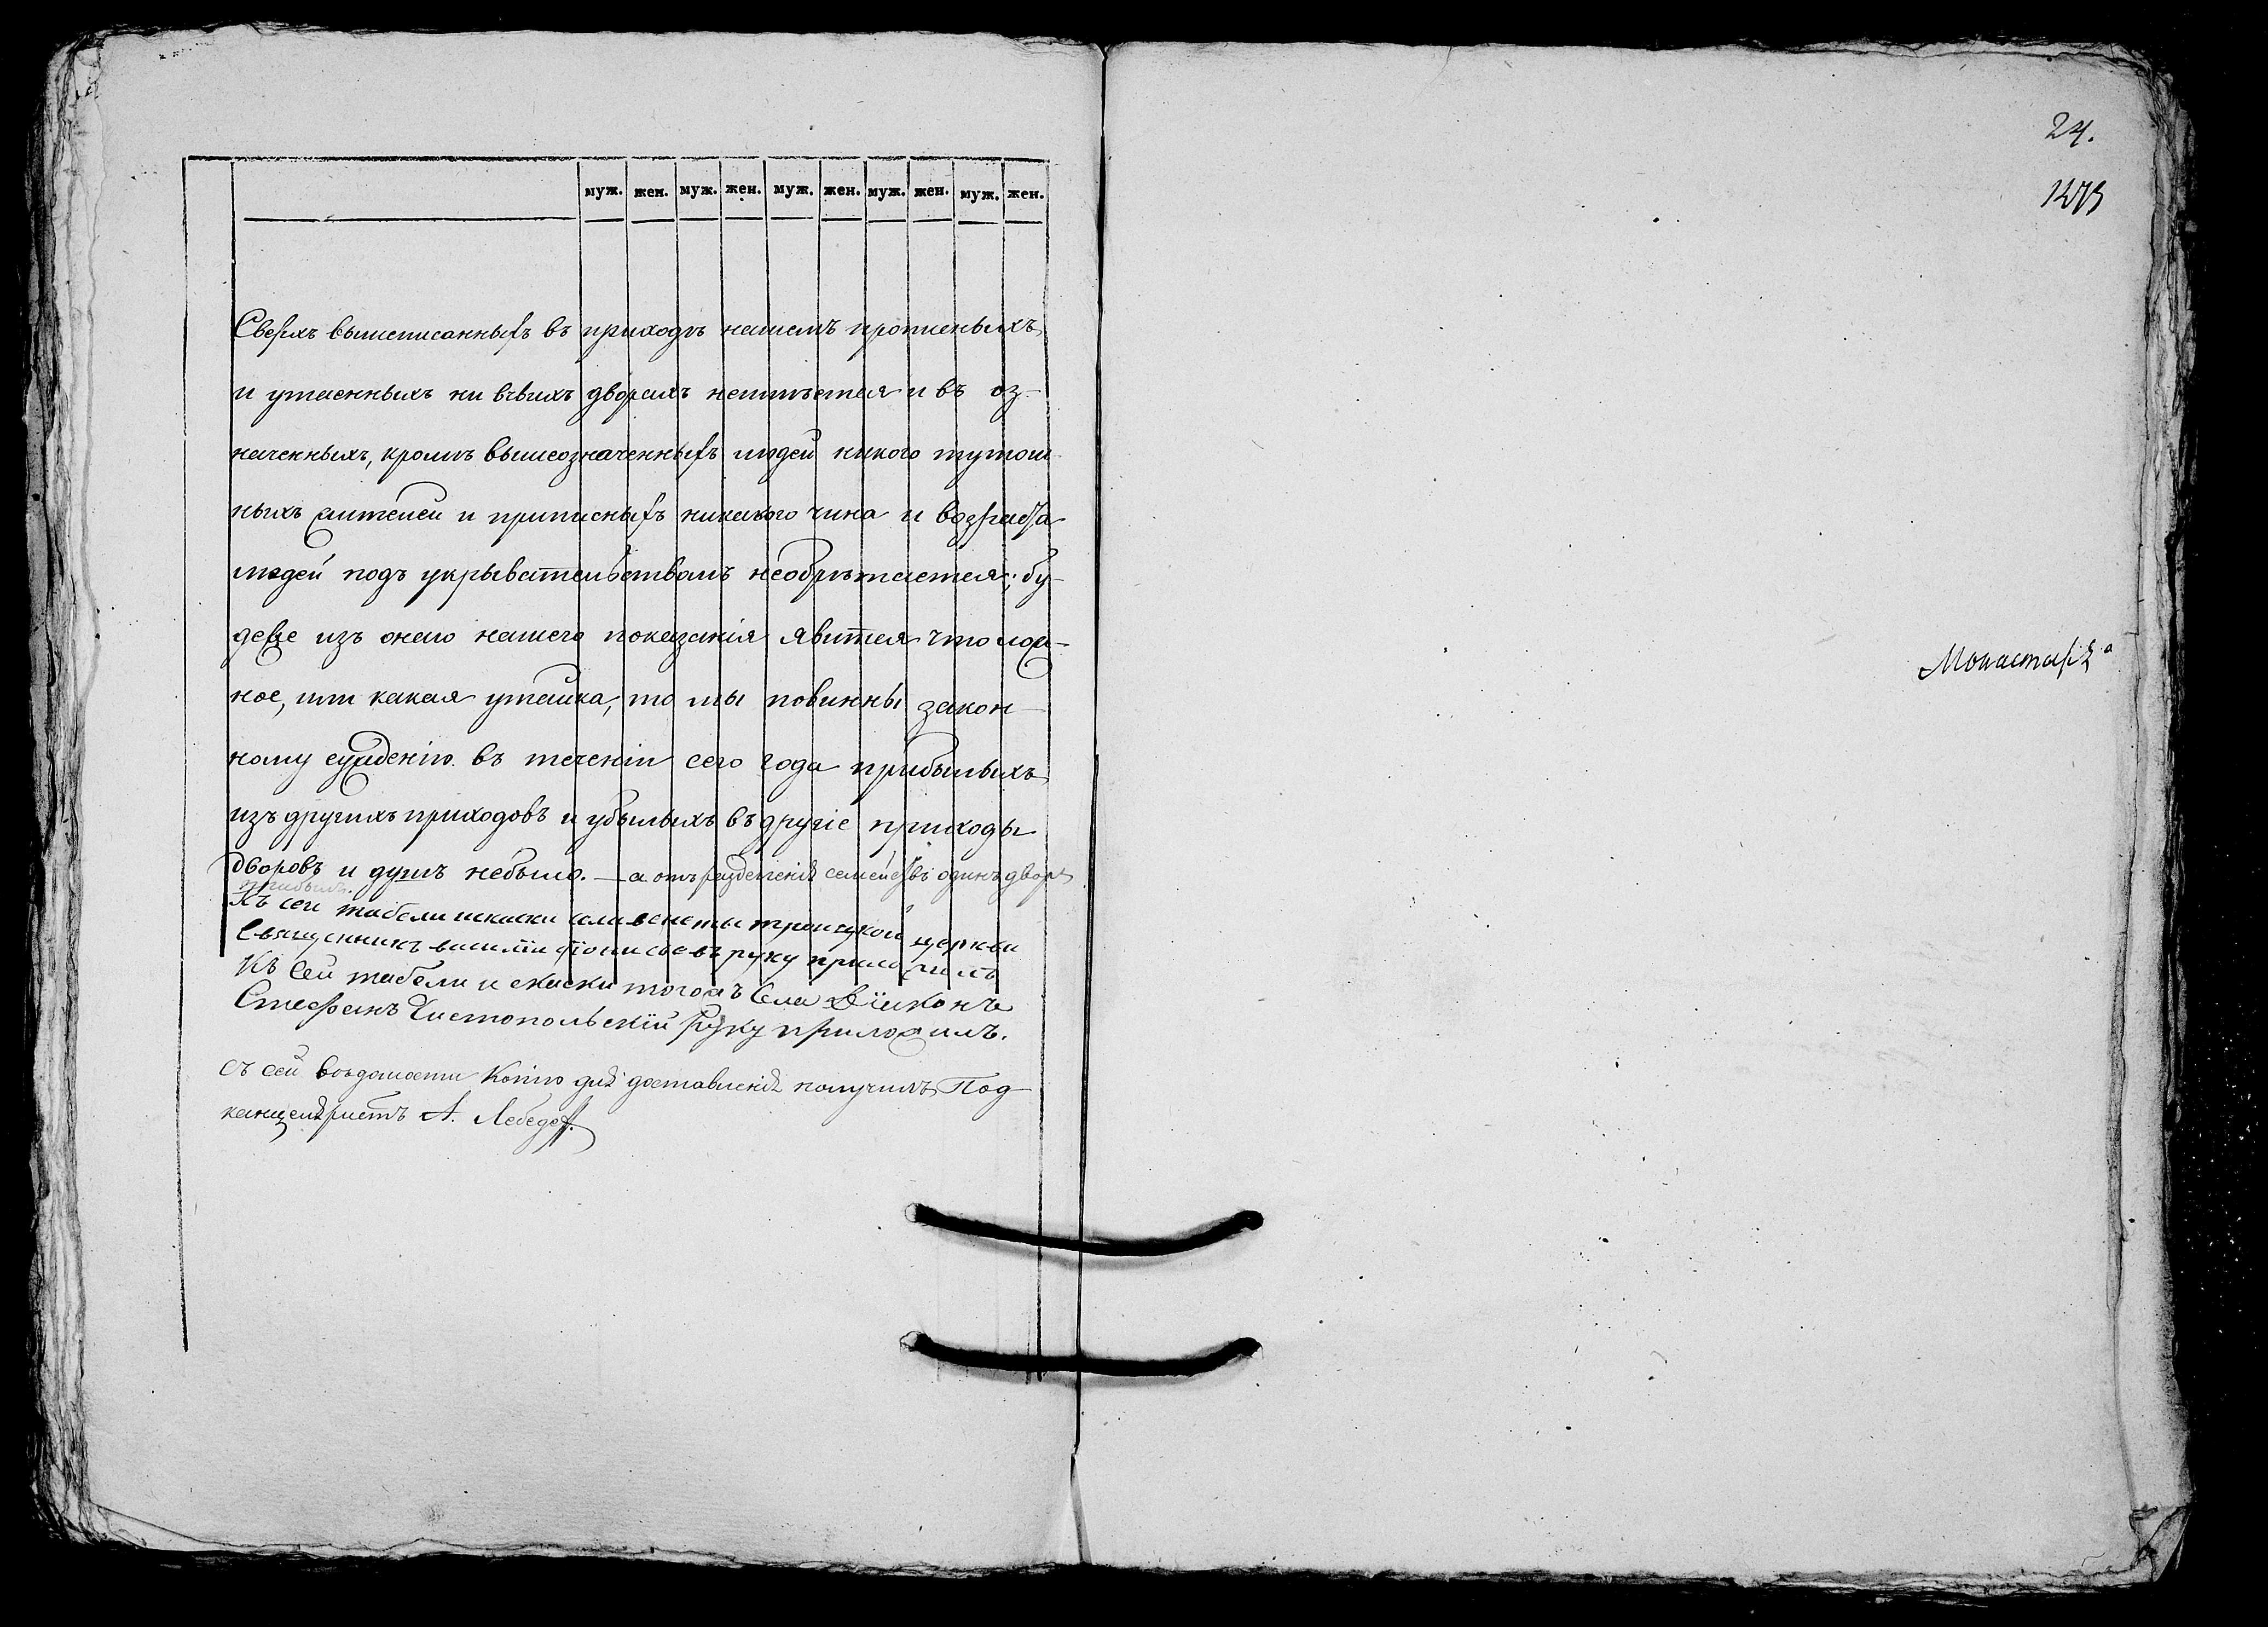 муж. жен. муж. жен. муж. жен. муж. жен. муж. жен.
Сверхъ вышеписанныхъ въ приходѣ нашемъ прописныхъ
и утаенныхъ ни въ чьихъ дворахъ неимѣется и въ оз-
наченныхъ, кромѣ вышеозначенныхъ людей никого тутош
ныхъ жителей и приписныхъ никакого чина и возраста
людей подъ укрывательствомъ необрѣтается; бу-
деже изъ онаго нашего показанія явится что лож-
ное, или какая утайка, то мы повинны закон-
ному сужденію. въ теченіи сего года прибылыхъ
изъ другихъ приходовъ и убылыхъ въ другіе приходы
дворовъ и душъ небыло. — а отъ раздѣленія семействъ одинъ дворъ
прибылъ.
Къ сей табели искаски села троицкой церкви
Священникъ василій руку приложилъ
Къ Сей табели и скаски тогожъ Села Дїиконъ
Стефанъ Чистопольскїй руку приложилъ.
съ сей вѣдомости копію для доставленія получилъ Под
канцеляристъ А. Лебедеff.
24.
Монастыр